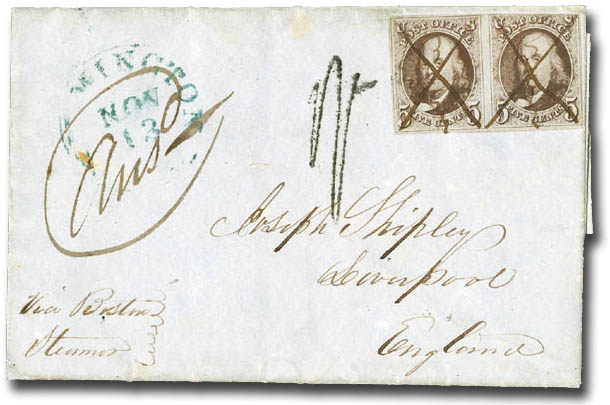 POST OFFICE POST OFFICE
5 FIVE CENTS 5 5 FIVE CENTS 5
WILMINGTON
NOV
13
Ansd
Joseph Shipley
Liverpool
England
Via Boston
Steamer